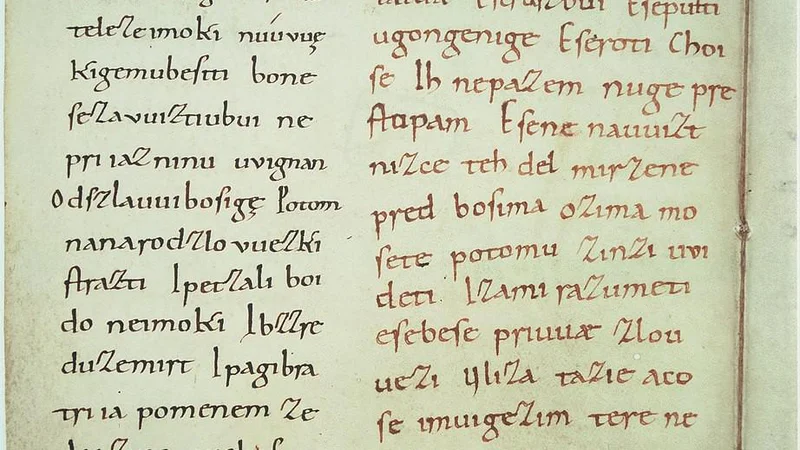 telezeimoki nuúvuę
kigemubesiti bone
sezavuiztiubui ne
pri iaz ninu uvignan
Odszlauuibosigę Potom
nanarodzlovuezki
strazti Ipetzali boi
do neimoki Ibzzre
duzemirt Ipagibra
tri ia pomenem ze
Eseputi
ugongenige Eseroti Choi
se Ih nepazem nuge pre
stopam Esene nauuizt
nizce teh del mirzene
pred bosima ozima mo
sete potomu zinzi uvi
deti Izami razumeti
esebese priuuae zlou
uezi Uliza tazie aco
se imuigezim tere ne